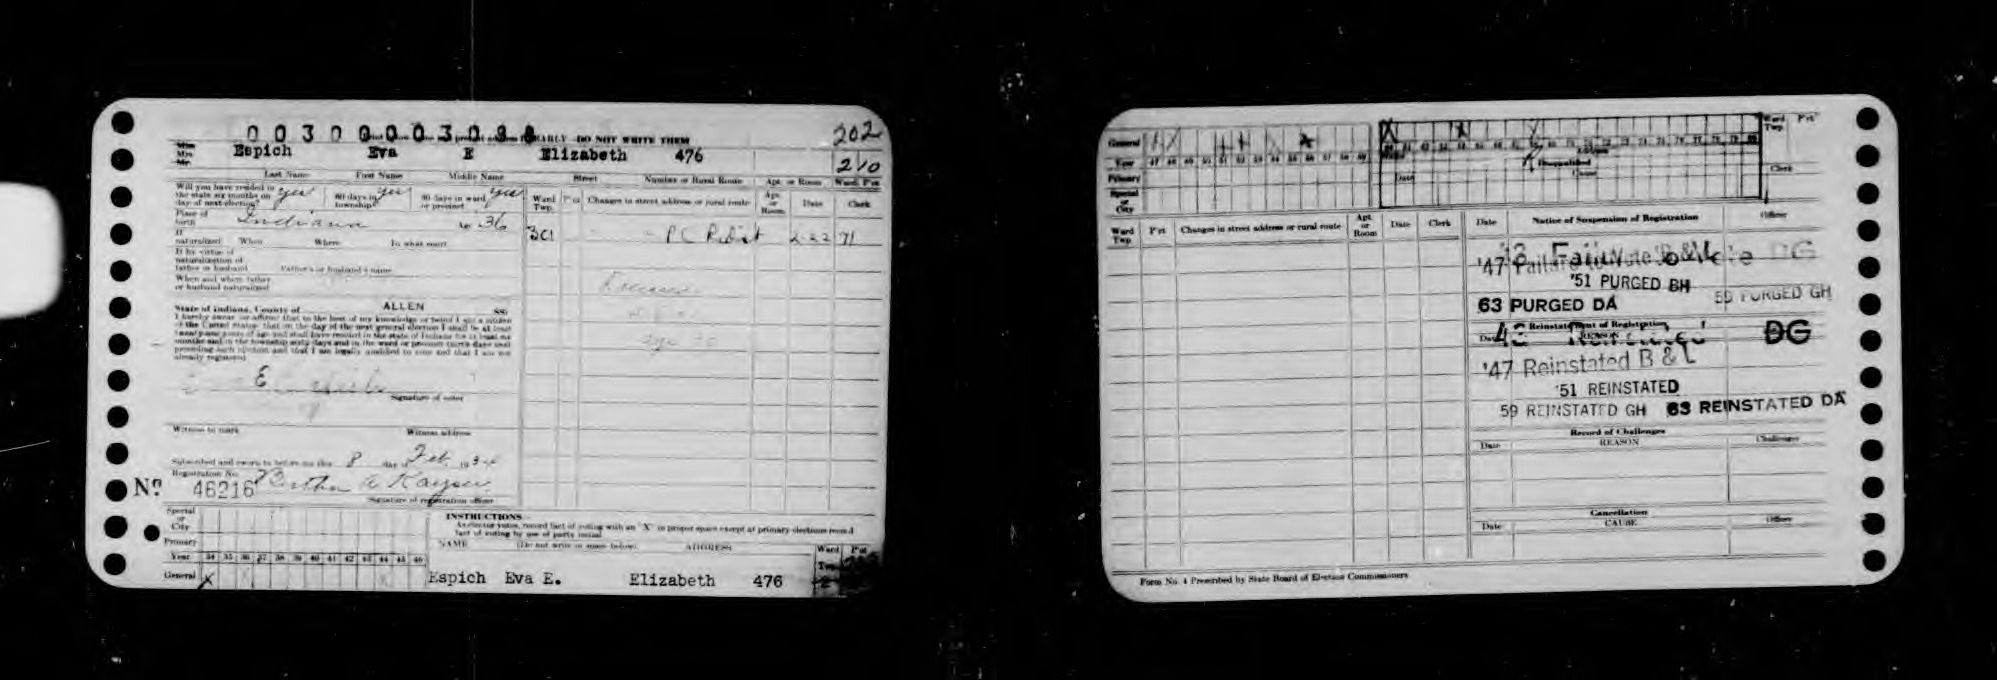 202
Miss
Mrs.
Mr.
Espich Eva E Elizabeth 476
210
Last Name First Name Middle Name Street Number or Rural Route Apt. or Room Ward Pct
Will you have resided in the state six months on day of next election? yes 60 days in township? yes 30 days in ward or precinct yes
Ward Twp. Pct Changes to street address or rural route Apt. or Room Date Clerk
Place of birth Indiana Age 36
301 2-22 71
If naturalized When Where In what court
If by virtue of naturalization of father or husband Father's or husband's name
When and where father or husband naturalized
State of Indiana, County of ALLEN SS:
I hereby swear (or affirm) that to the best of my knowledge or belief I am a citizen
of the United States; that on the day of the next general election I shall be at least
twenty-one years of age and shall have resided in the state of Indiana for at least six
months and in the township sixty days and in the ward or precinct thirty days next
preceding such election and that I am legally qualified to vote and that I am not
already registered
Signature of voter
Witness to mark Witness address
Subscribed and sworn to before me this 8 day of Feb. 1934
Registration No.
No 46216
Signature of registration officer
Special or City
Primary
Year 34 35 36 37 38 39 40 41 42 43 44 45 46
General X
INSTRUCTIONS
As elector votes, record fact of voting with an "X" in proper space except at primary elections record
fact of voting by use of party initial
NAME (Do not write in space below) ADDRESS Ward Twp. Pct
Espich Eva E. Elizabeth 476
General
Year 47 48 49 50 51 52 53 54 55 56 57 58 59
Primary
Special or City
Ward Twp. Pct
Clerk
Disqualified
Cause
Date
Ward Twp. Pct Changes in street address or rural route Apt. or Room Date Clerk
Date Notice of Suspension of Registration Officer
'47 Failure to Vote B & L DG
'51 PURGED BH
63 PURGED DA 59 PURGED GH
Date Reinstatement of Registration DG
REASON
'47 Reinstated B & L
'51 REINSTATED
59 REINSTATED GH 63 REINSTATED DA
Record of Challenges
Date REASON Challenger
Cancellation
Date CAUSE Officer
Form No. 4 Prescribed by State Board of Election Commissioners